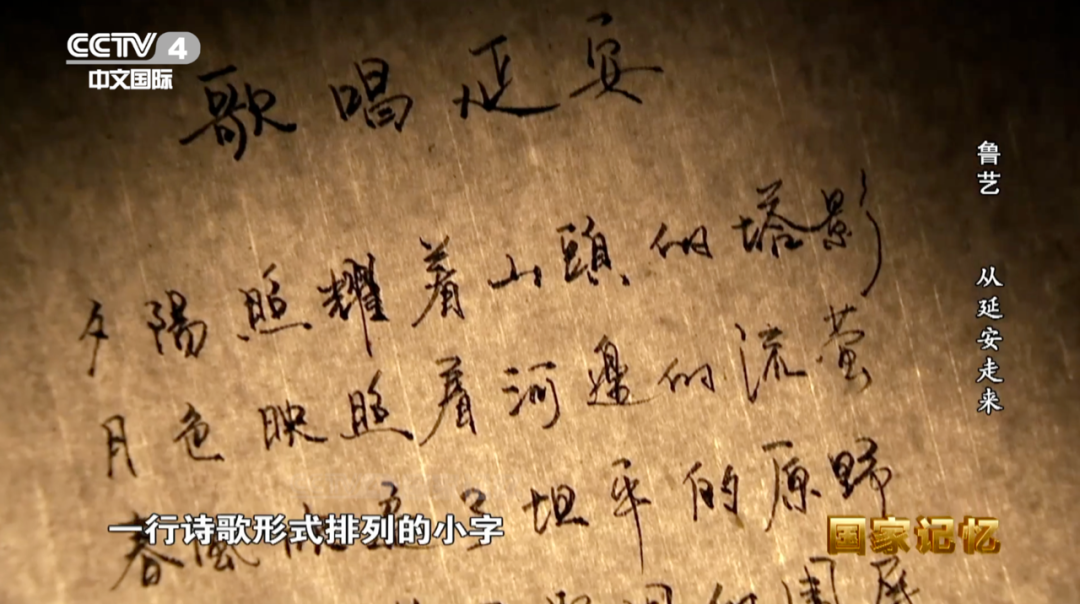 CCTV 4
中文国际
歌唱延安
夕陽照耀着山頭的塔影
月色映照着河邊的流萤
春風 了坦平的原野
的围屏
一行诗歌形式排列的小字
鲁艺 从延安走来
国家记忆